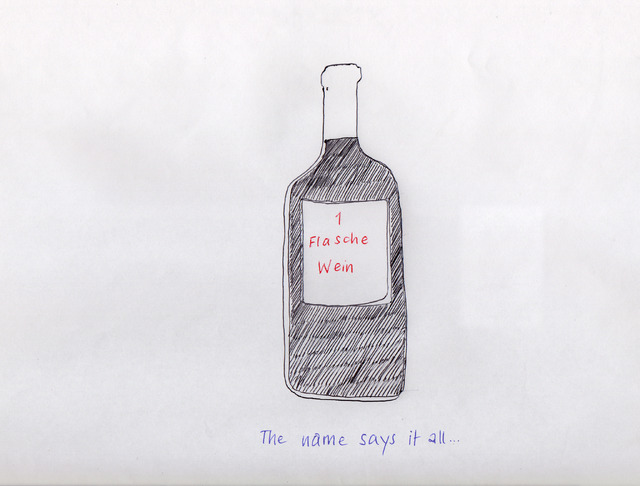 1
Flasche
Wein
The name says it all...